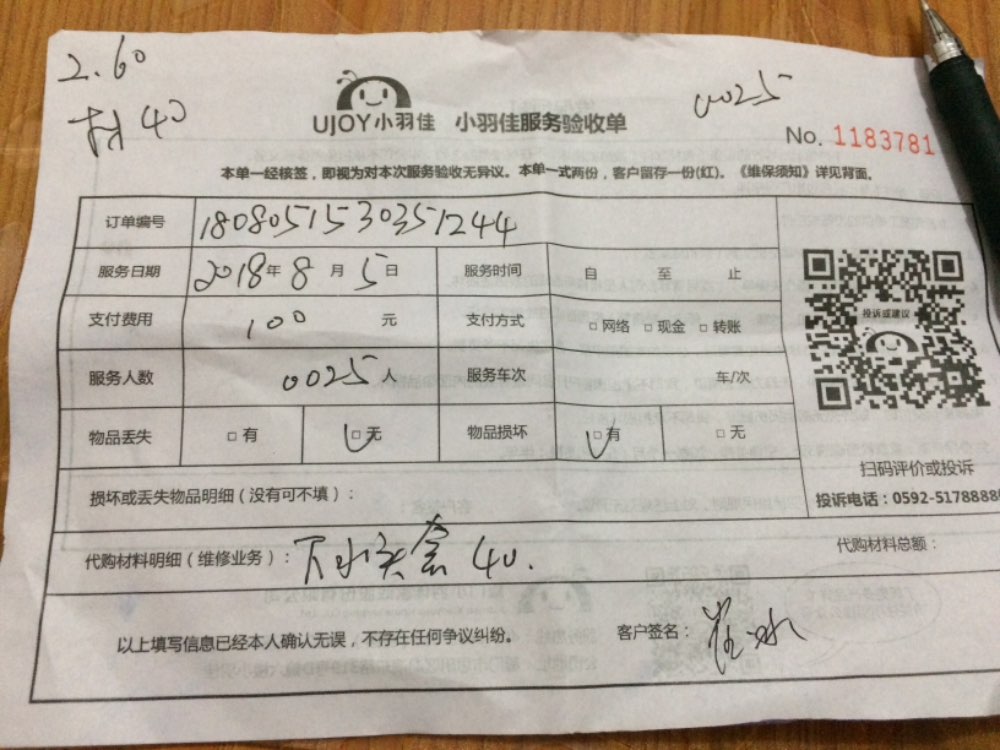 2.60
材 40
0025
UJOY小羽佳 小羽佳服务验收单
No. 1183781
本单一经核签，即视为对本次服务验收无异议。本单一式两份，客户留存一份(红)。《维保须知》详见背面。
订单编号 180805153035 1244
服务日期 2018年 8 月 5 日 服务时间 自 至 止
支付费用 100 元 支付方式 □ 网络 □ 现金 □ 转账
投诉或建议
服务人数 0025 人 服务车次 车/次
物品丢失 □ 有 □ 无 物品损坏 □ 有 □ 无
扫码评价或投诉
损坏或丢失物品明细（没有可不填）：
投诉电话：0592-5178888
代购材料明细（维修业务）： 下水 套 40.
代购材料总额：
以上填写信息已经本人确认无误，不存在任何争议纠纷。 客户签名：